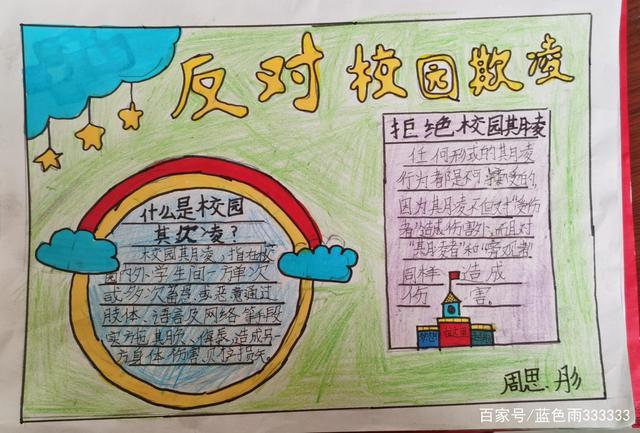 反对校园欺凌
什么是校园
其欠凌？
校园其月凌，指在校
园内外学生间一方单次
或多次蓄意或恶意通过
肢体、语言及网络等手段
实施其欺、侮辱，造成另一
方身体伤害、财产损失。
拒绝校园其月凌
任何形式的其月凌
行为都是不可接受的，
因为其月凌不但对“受伤
者”造成伤害外，而且对
“其月凌者”和“旁观者”
同样造成
伤害。
周思彤
百家号/蓝色雨333333